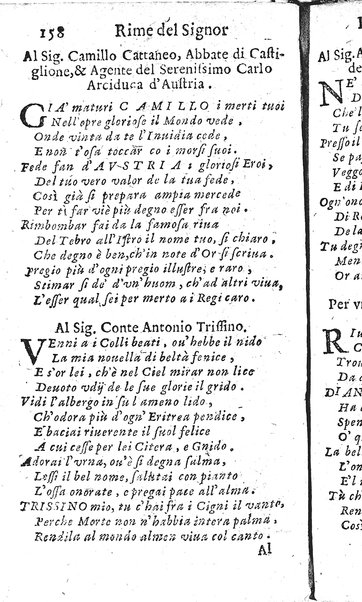 158 Rime del Signor
Al Sig. Camillo Cattaneo, Abbate di Casti-
glione, & Agente del Serenissimo Carlo
Arciduca d'Austria.
GIA' maturi CAMILLO i merti tuoi
Nell'opre gloriose il Mondo vede,
Onde vinta da te l'Inuidia cede,
E non t'osa toccar co i morsi suoi.
Fede fan d'AVSTRIA i gloriosi Eroi,
Del tuo vero valor de la tua fede,
Così già si prepara ampia mercede
Per ti far viè più degno esser fra noi.
Rimbombar fai da la famosa riua
Del Tebro all'Istro il nome tuo, sì chiaro,
Che degno è ben, ch'in note d'Or si scriua.
Pregio più d'ogni pregio illustre, e raro,
Stimar si de' d'vn'huom, ch'ad altri viua,
L'esser qual sei per merto a i Regi caro.
Al Sig. Conte Antonio Trissino.
VEnni a i Colli beati, ou'hebbe il nido
La mia nouella di beltà fenice,
E s'or lei, ch'è nel Ciel mirar non lice
Deuoto vdij de le sue glorie il grido.
Vidi l'albergo in su l ameno lido,
Ch'odora più d'ogn'Eritrea pendice,
E baciai riuerente il suol felice
A cui cesse per lei Citera, e Gnido.
Adorai l'vrna, ou'è si degna salma,
Lessi il bel nome, salutai con pianto
L'ossa onorate, e pregai pace all'alma.
TRISSINO mio, tu c'hai fra i Cigni il vanto,
Perche Morte non n'habbia intera palma,
Rendila al mondo almen viua col canto.
Al